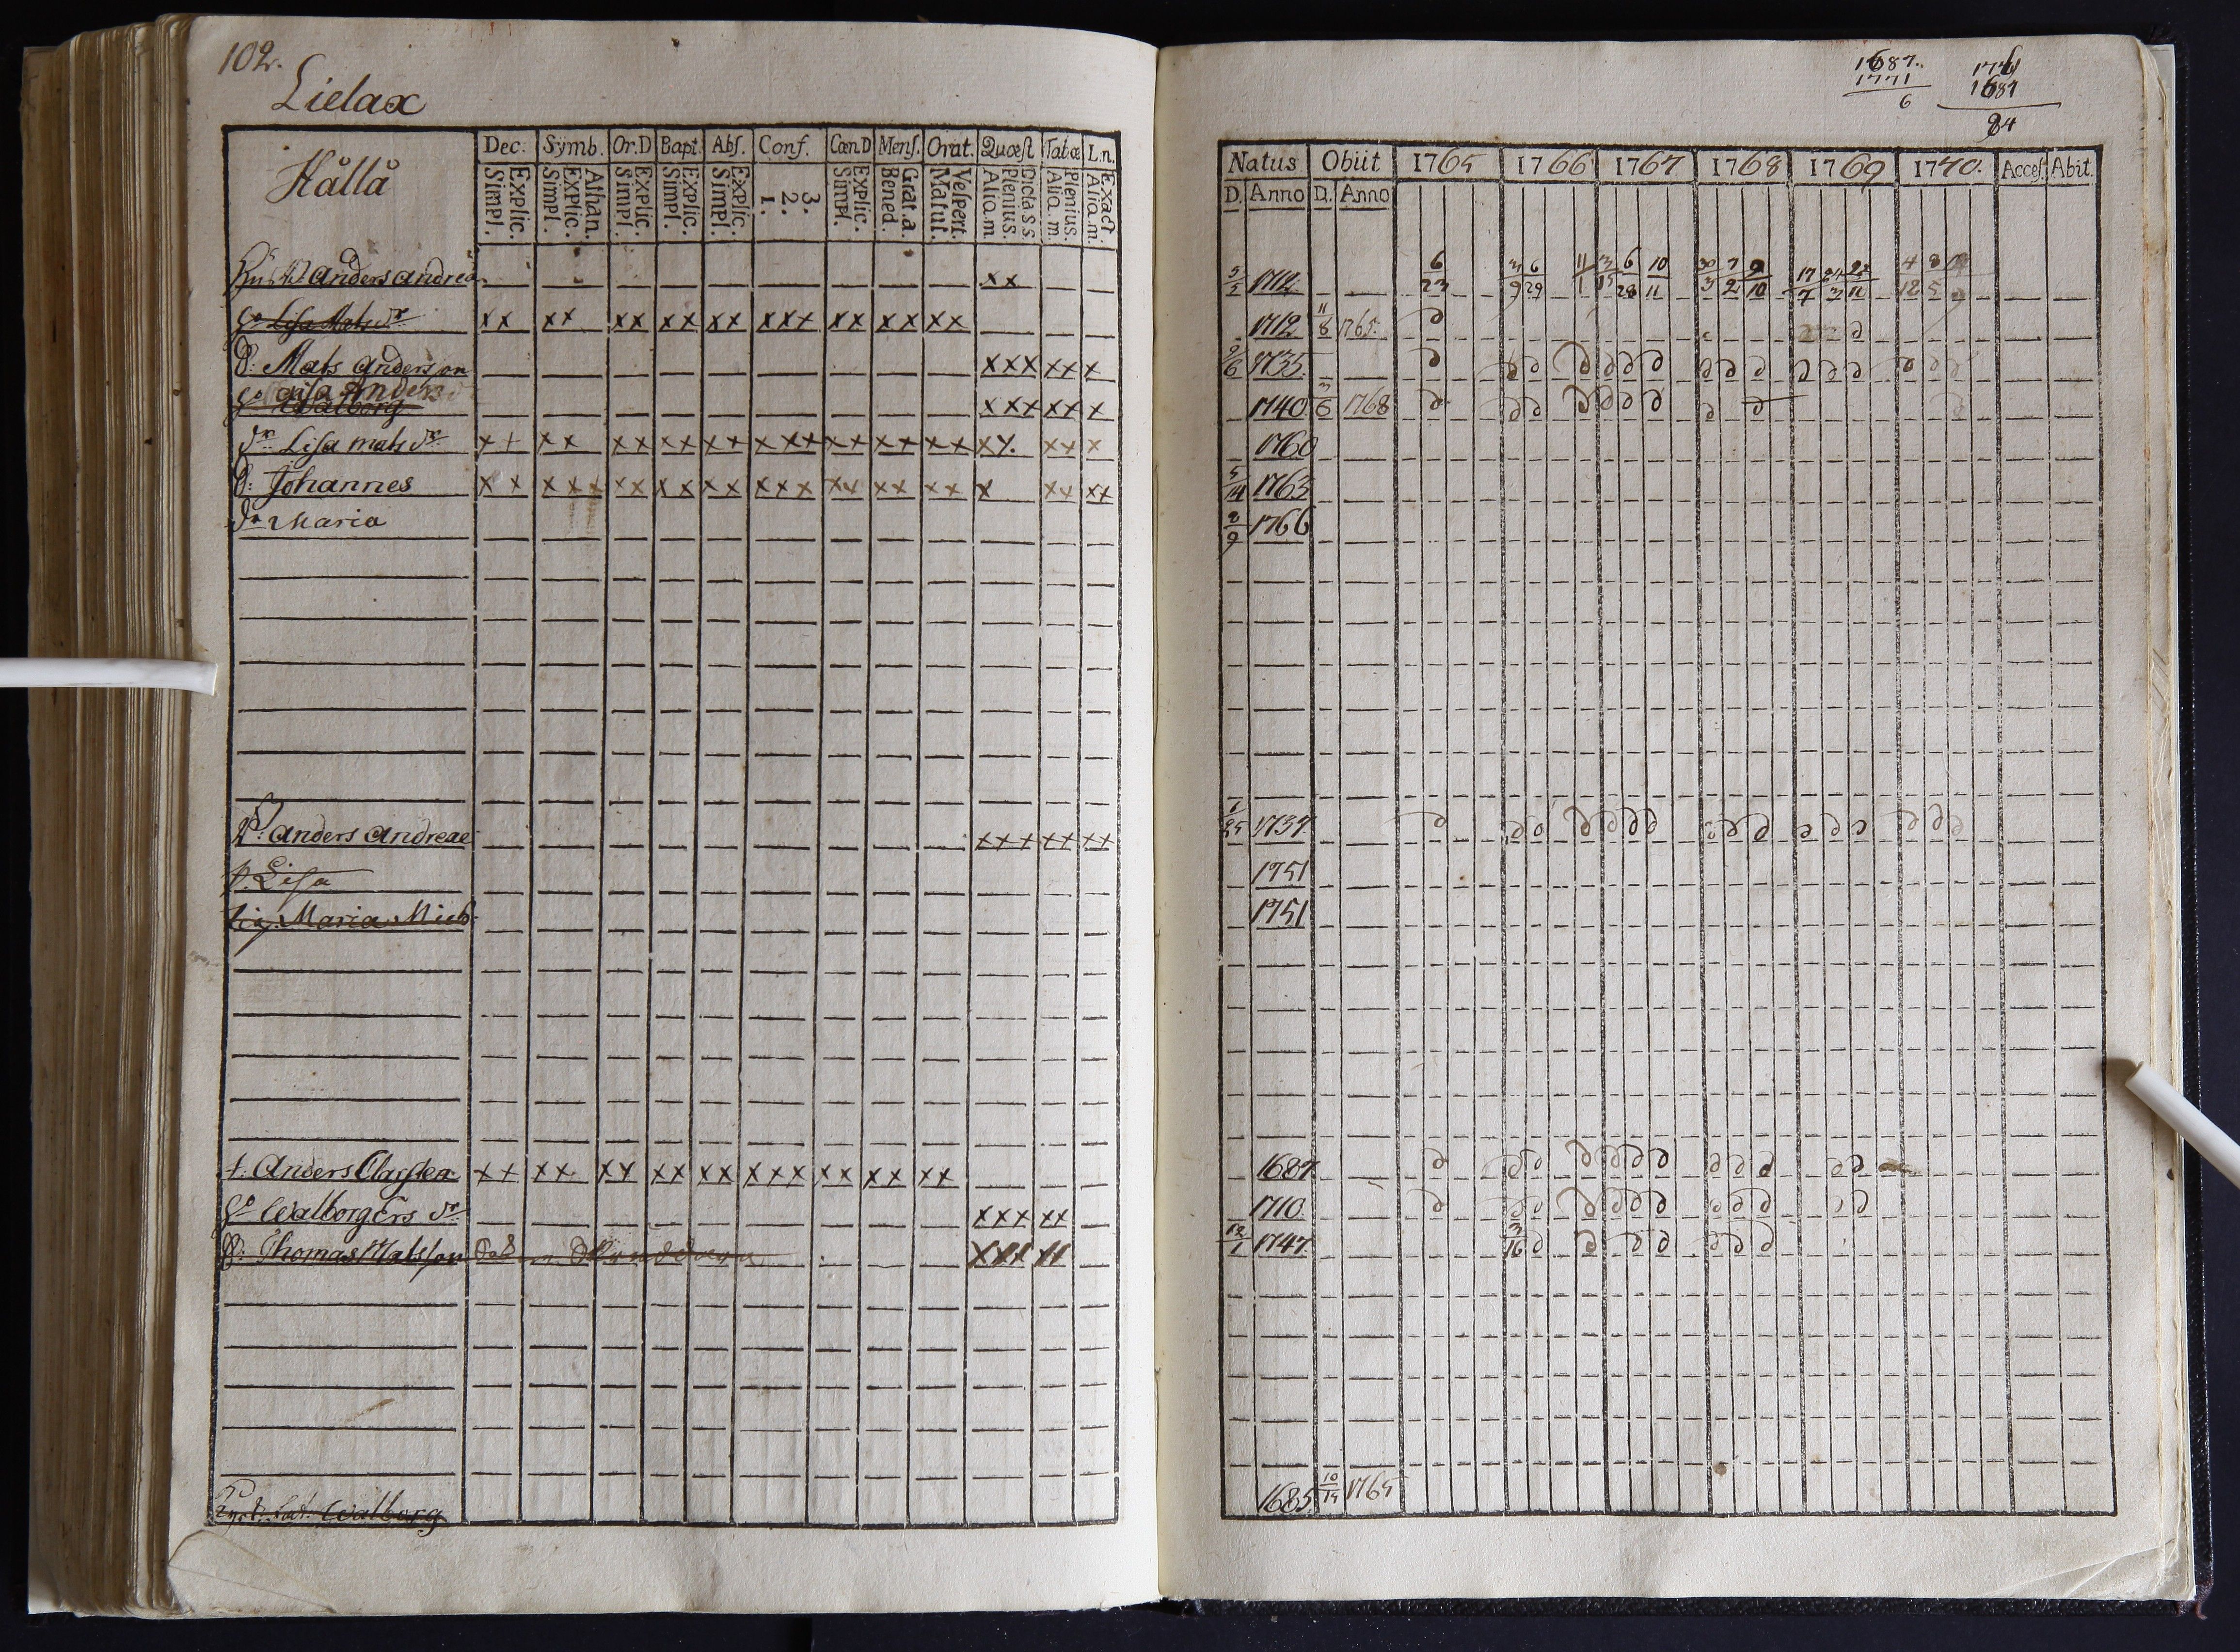 102.
Lielax
Hållå
Dec. Symb. Or.D Bapt. Abs. Conf. Cœn.D Mens. Orat. Quæst Tab.œ L.n.
Explic. Simpl. Athan. Explic. Simpl. Explic. Simpl. Explic. Simpl. Explic. Simpl. 3. 2. 1. Explic. Simpl. Grat.a. Bened. Vespert. Matut. Dicta S.S. Plenius. Aliq.m. Plenius. Aliq.m. Exact. Aliq.m.
Anders Andreæ xx
Lisa Mats dr xx xx xx xx xx xxx xx xx xx
Mats Andersson xxx xx x
Caisa Anders
Walborg xxx xx x
dr Lisa Mats dr xx xx xx xx xx xxx xx xx xx xx xx x
Johannes xx xxx xx xx xx xxx xx xx xx x xx xx
dr Maria
Anders Andreae xxx xx xx
p. Lisa
Maria Mich
t. Anders Clasſen xx xx xx xx xx xxx xx xx xx
Walborg Ers dr xxx xx
Thomas Matsſon xxx xx
Walborg
1687.
1771
6
1771
1687
84
Natus Obiit 1765 1766 1767 1768 1769 1770. Acces. Abit.
D. Anno D. Anno
5/5 1712 6/23 3/9 6/29 11/1 3/15 6/28 10/11 30/3 7/2 9/10 17/7 24/3 22/11
1712 11/8 1765.
9/6 1735
1740 3/6 1768
1760
5/14 1763
8/9 1766
1/25 1737
1751
1751
1687
1710
12/1 1747 3/16
1685 10/14 1765